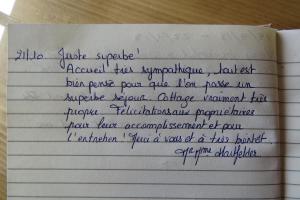 21/10 Juste superbe!
Accueil très sympathique, tout est
bien pensé pour que l'on passe un
superbe séjour. Cottage vraiment très
propre. Félicitations aux propriétaires
pour leur accomplissement et pour
l'entretien! Merci à vous et à très bientôt.
Mr Mme